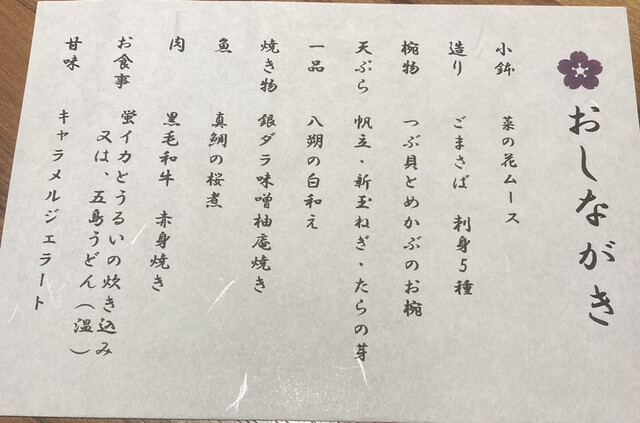 おしながき
小鉢　菜の花ムース
造り　ごまさば　刺身5種
椀物　つぶ貝とめかぶのお椀
天ぷら　帆立・新玉ねぎ・たらの芽
一品　八朔の白和え
焼き物　銀ダラ味噌柚庵焼き
魚　真鯛の桜煮
肉　黒毛和牛　赤身焼き
お食事　蛍イカとうるいの炊き込み
又は、五島うどん(温)
甘味　キャラメルジェラート